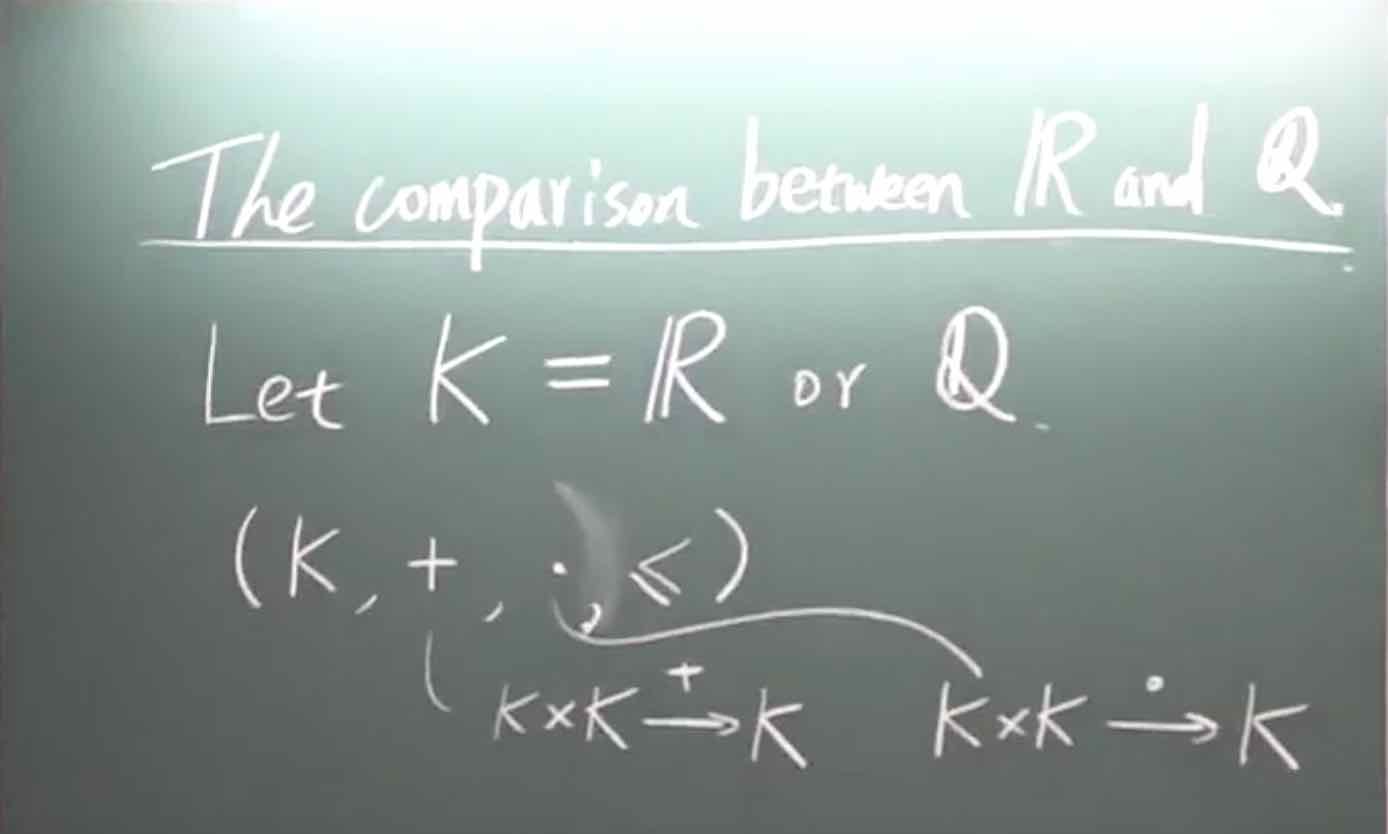 The comparison between ℝ and ℚ.
Let K = ℝ or ℚ.
(K, +, ·, ≤)
K×K —+→ K    K×K —·→ K